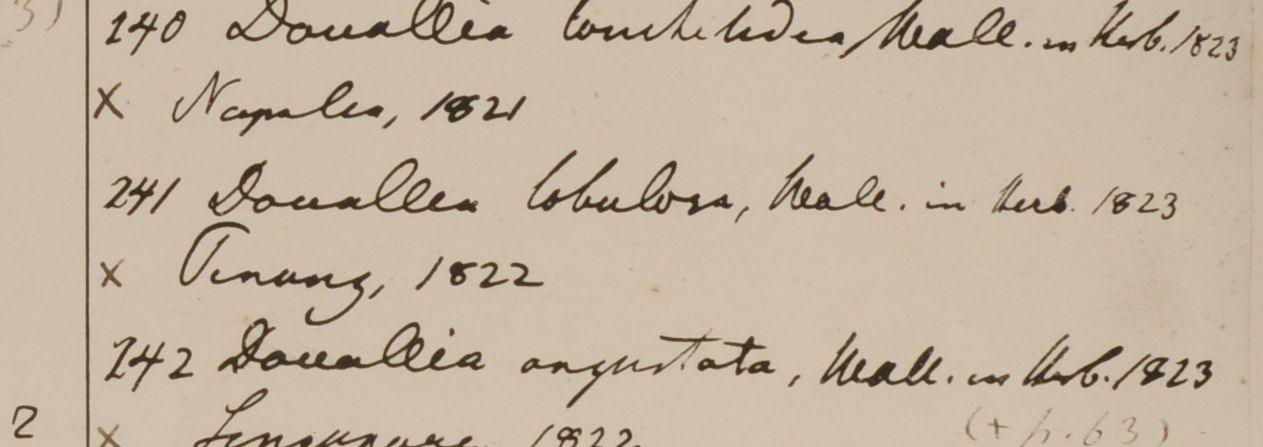 240 Davallia Wall. in Herb. 1823
x Napalia, 1821
241 Davallia lobulosa, Wall. in Herb. 1823
x Penang, 1822
242 Davallia angustata, Wall. in Herb. 1823
2 x Singapore, 1822.
(+ p. 63)